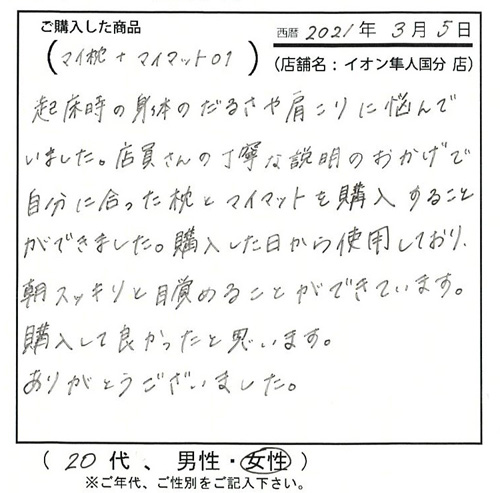 ご購入した商品
西暦 2021年 3月 5日
(マイ枕 + マイマット01)
(店舗名：イオン隼人国分 店)
起床時の身体のだるさや肩こりに悩んで
いました。店員さんの丁寧な説明のおかげで
自分に合った枕とマイマットを購入すること
ができました。購入した日から使用しており、
朝スッキリと目覚めることができています。
購入して良かったと思います。
ありがとうございました。
(20代、男性・女性)
※ご年代、ご性別をご記入下さい。